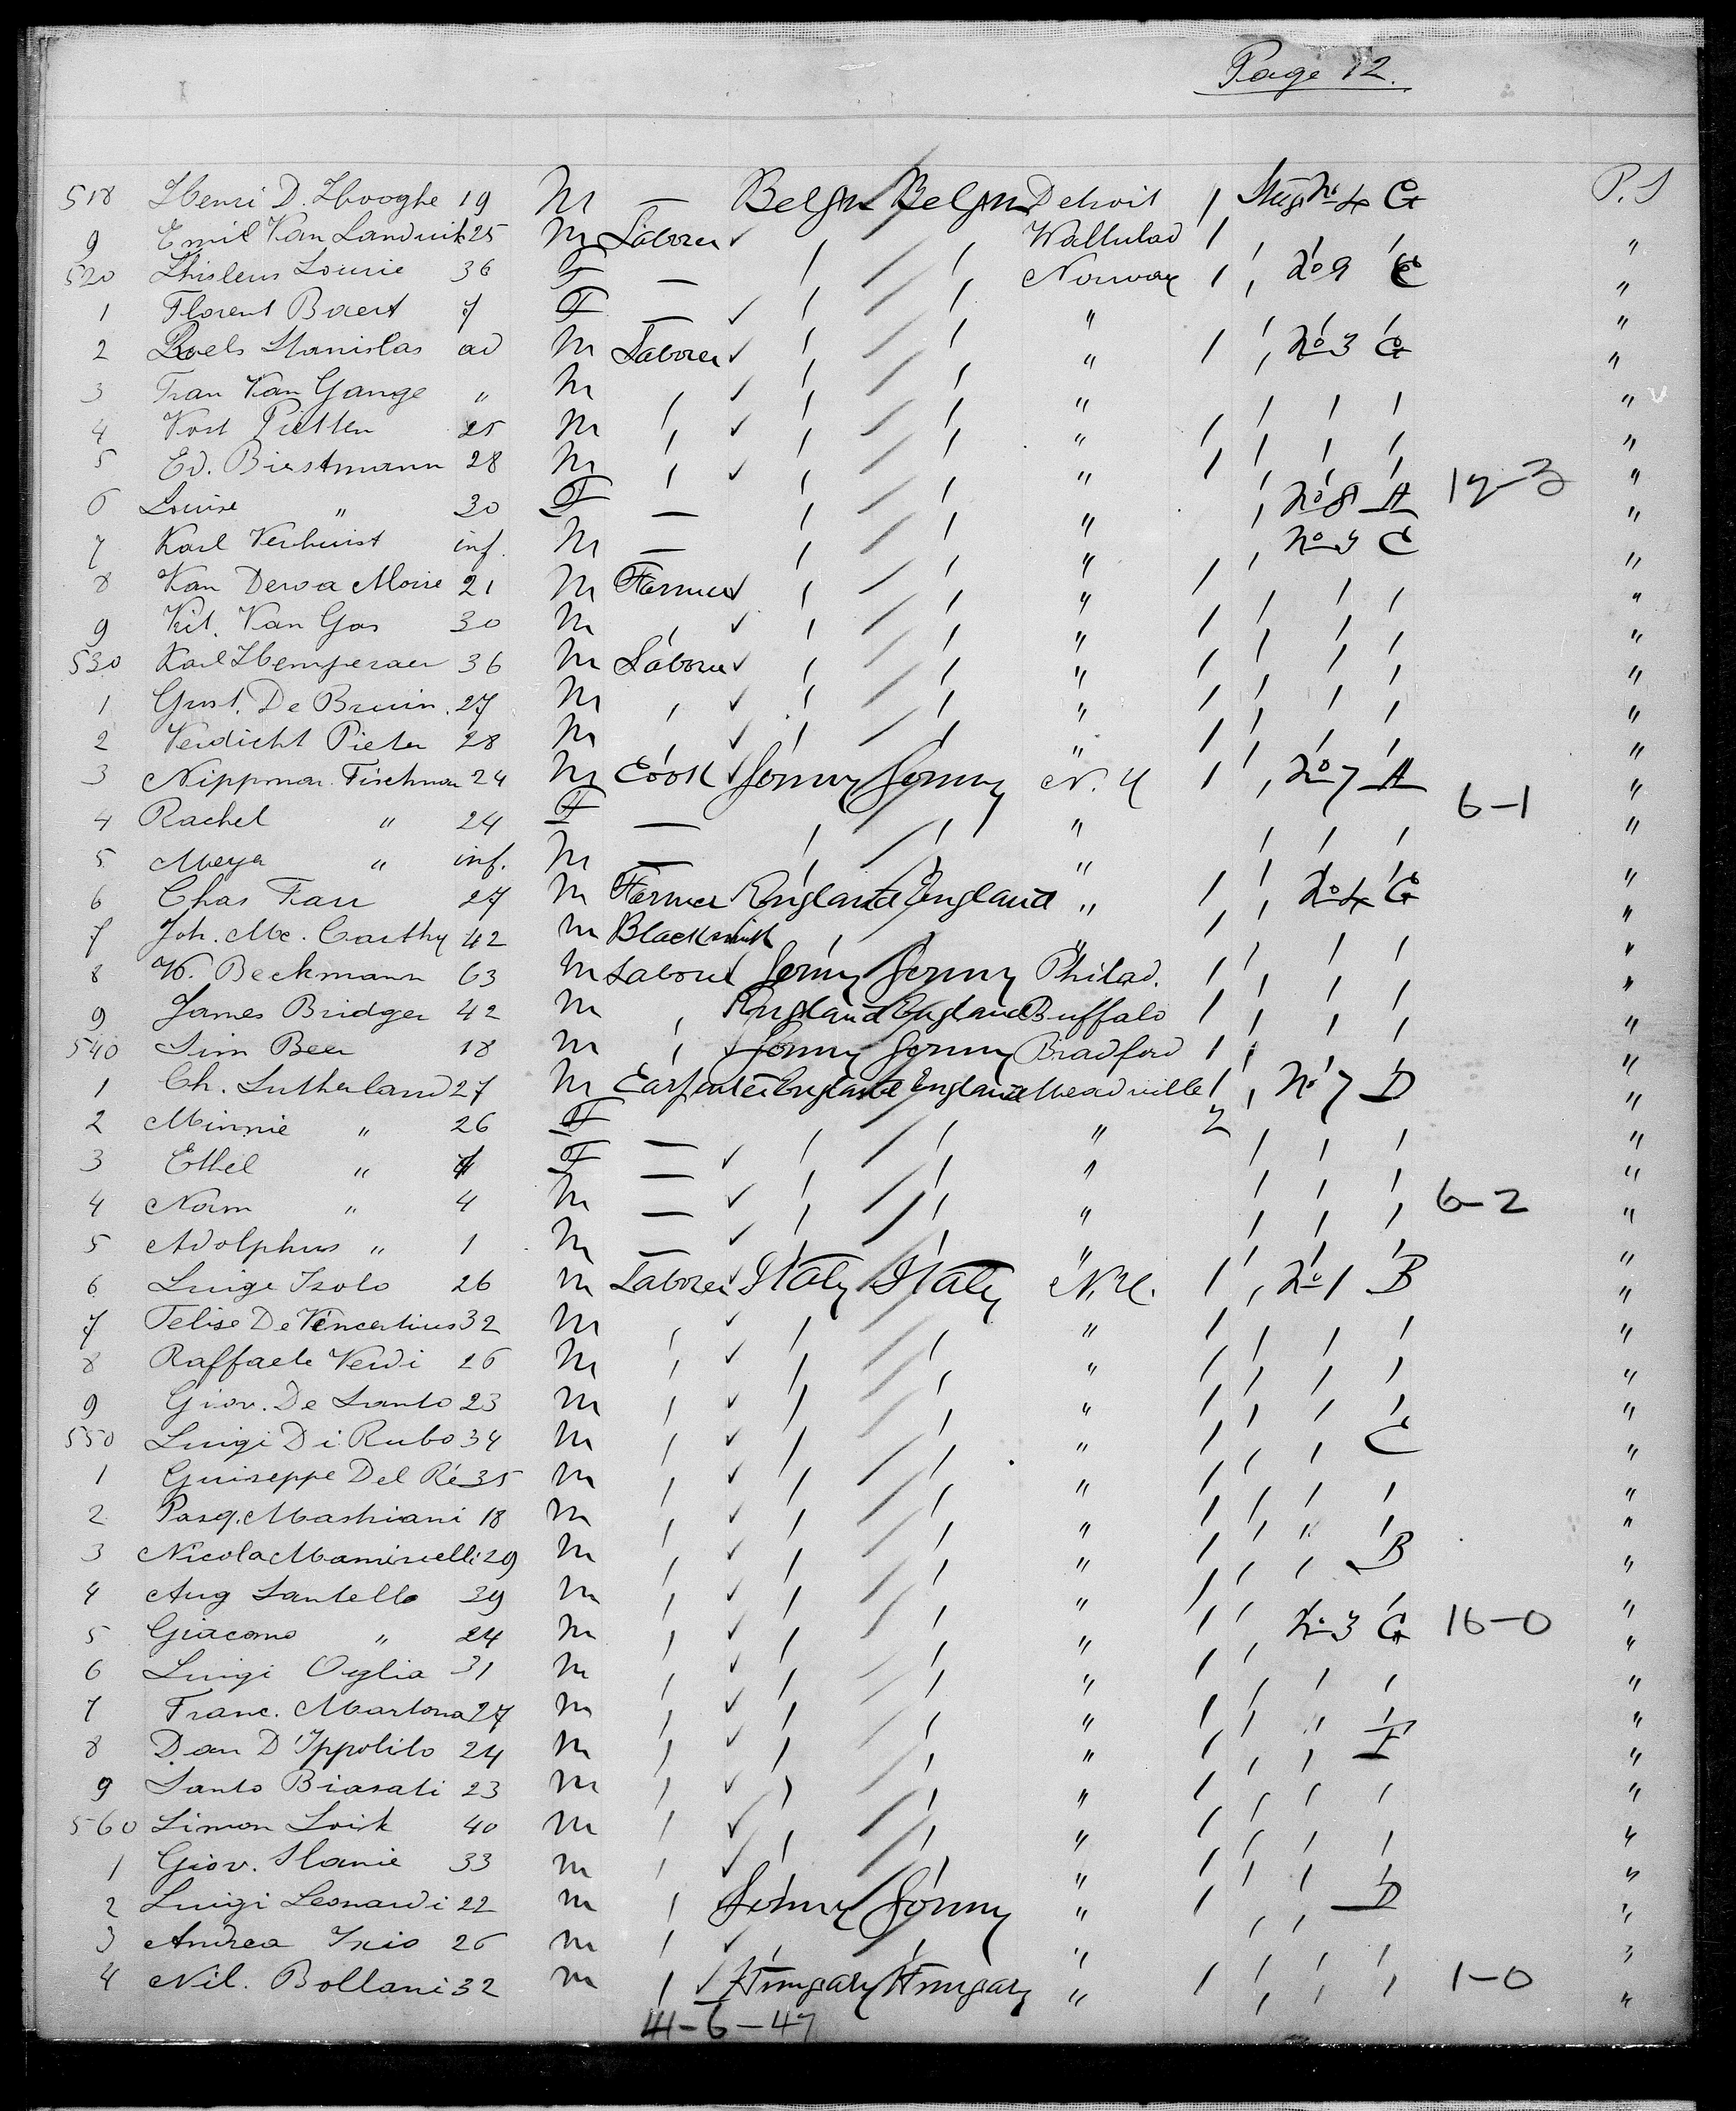 Page 12.
518 Henri D. Hooghe 19 M — Belgm Belgm Detroit 1 Steg. No 4 G P.S
9 Emil Van Landuik 25 M Laborer ✓ 1
520 Ghislens Lourie 36 F — Norway 1 No 9 "
1 Florent Baert 7 F — ✓ " "
2 Roels Stanislas ad M Laborer ✓ " 1 No 3 G "
3 Fran Van Gange " M ✓ " "
4 Vost Pietten 25 M ✓ " 1 "
5 Ed. Birstmann 28 M ✓ " 1 "
6 Louise " 30 F — " No 8 A 12-3 "
7 Karl Verhurst inf. M — " No 3 C "
8 Van Derva Moire 21 M Farmer ✓ " 1 "
9 Vit. Van Gas 30 M ✓ " 1 "
530 Karl Hemperaer 36 M Laborer ✓ " 1 "
1 Gust. De Bruin. 27 M ✓ " 1 "
2 Verdicht Pieter 28 M ✓ " 1 "
3 Nippman Fischman 24 M Cook ✓ Germy Germy N.Y 1 No 7 A "
4 Rachel " 24 F — " 6-1 "
5 Meya " inf. M — " "
6 Chas Farr 27 M Farmer England England " 1 No 4 G "
7 Joh. Mc. Carthy 42 M Blacksmith " 1 "
8 W. Beckmann 63 M Laborer Germy Germy Philad. 1 "
9 James Bridger 42 M England England Buffalo 1 "
540 Sim Beer 18 M Germy Germy Bradford 1 "
1 Ch. Sutherland 27 M Carpenter England England Meadville 1 No 7 D "
2 Minnie " 26 F — " 2 "
3 Ethel " F — ✓ " "
4 Norm " 4 M — ✓ " 6-2 "
5 Adolphus " 1 M — ✓ " "
6 Luige Isolo 26 M Laborer ✓ Italy Italy N.Y. 1 No 1 B "
7 Felise De Vencertius 32 M ✓ " 1 "
8 Raffaele Verdi 26 M ✓ " 1 "
9 Giov. De Santo 23 M ✓ " 1 "
550 Luigi Di Rubo 34 M ✓ " 1 C "
1 Guiseppe Del Ré 35 M ✓ " 1 "
2 Pasq. Mashiani 18 M ✓ " 1 "
3 Nicola 29 M ✓ " 1 B "
4 Aug Santello 39 M ✓ " 1 "
5 Giacomo " 24 M ✓ " 1 No 3 G 16-0 "
6 Luigi Oglia 31 M ✓ " 1 "
7 Franc. Martona 27 M ✓ " 1 "
8 Dan D'Ippolito 24 M ✓ " 1 F "
9 Santo Biasati 23 M ✓ " 1 "
560 Simon Loisk 40 M ✓ " 1 "
1 Giov. Slanie 33 M ✓ " 1 "
2 Luigi Leonardi 22 M Germy Germy " 1 D "
3 Andrea Ixio 26 M ✓ " "
4 Nil. Bollani 32 M ✓ Hungary Hungary " 1 1-0 "
41-6-47